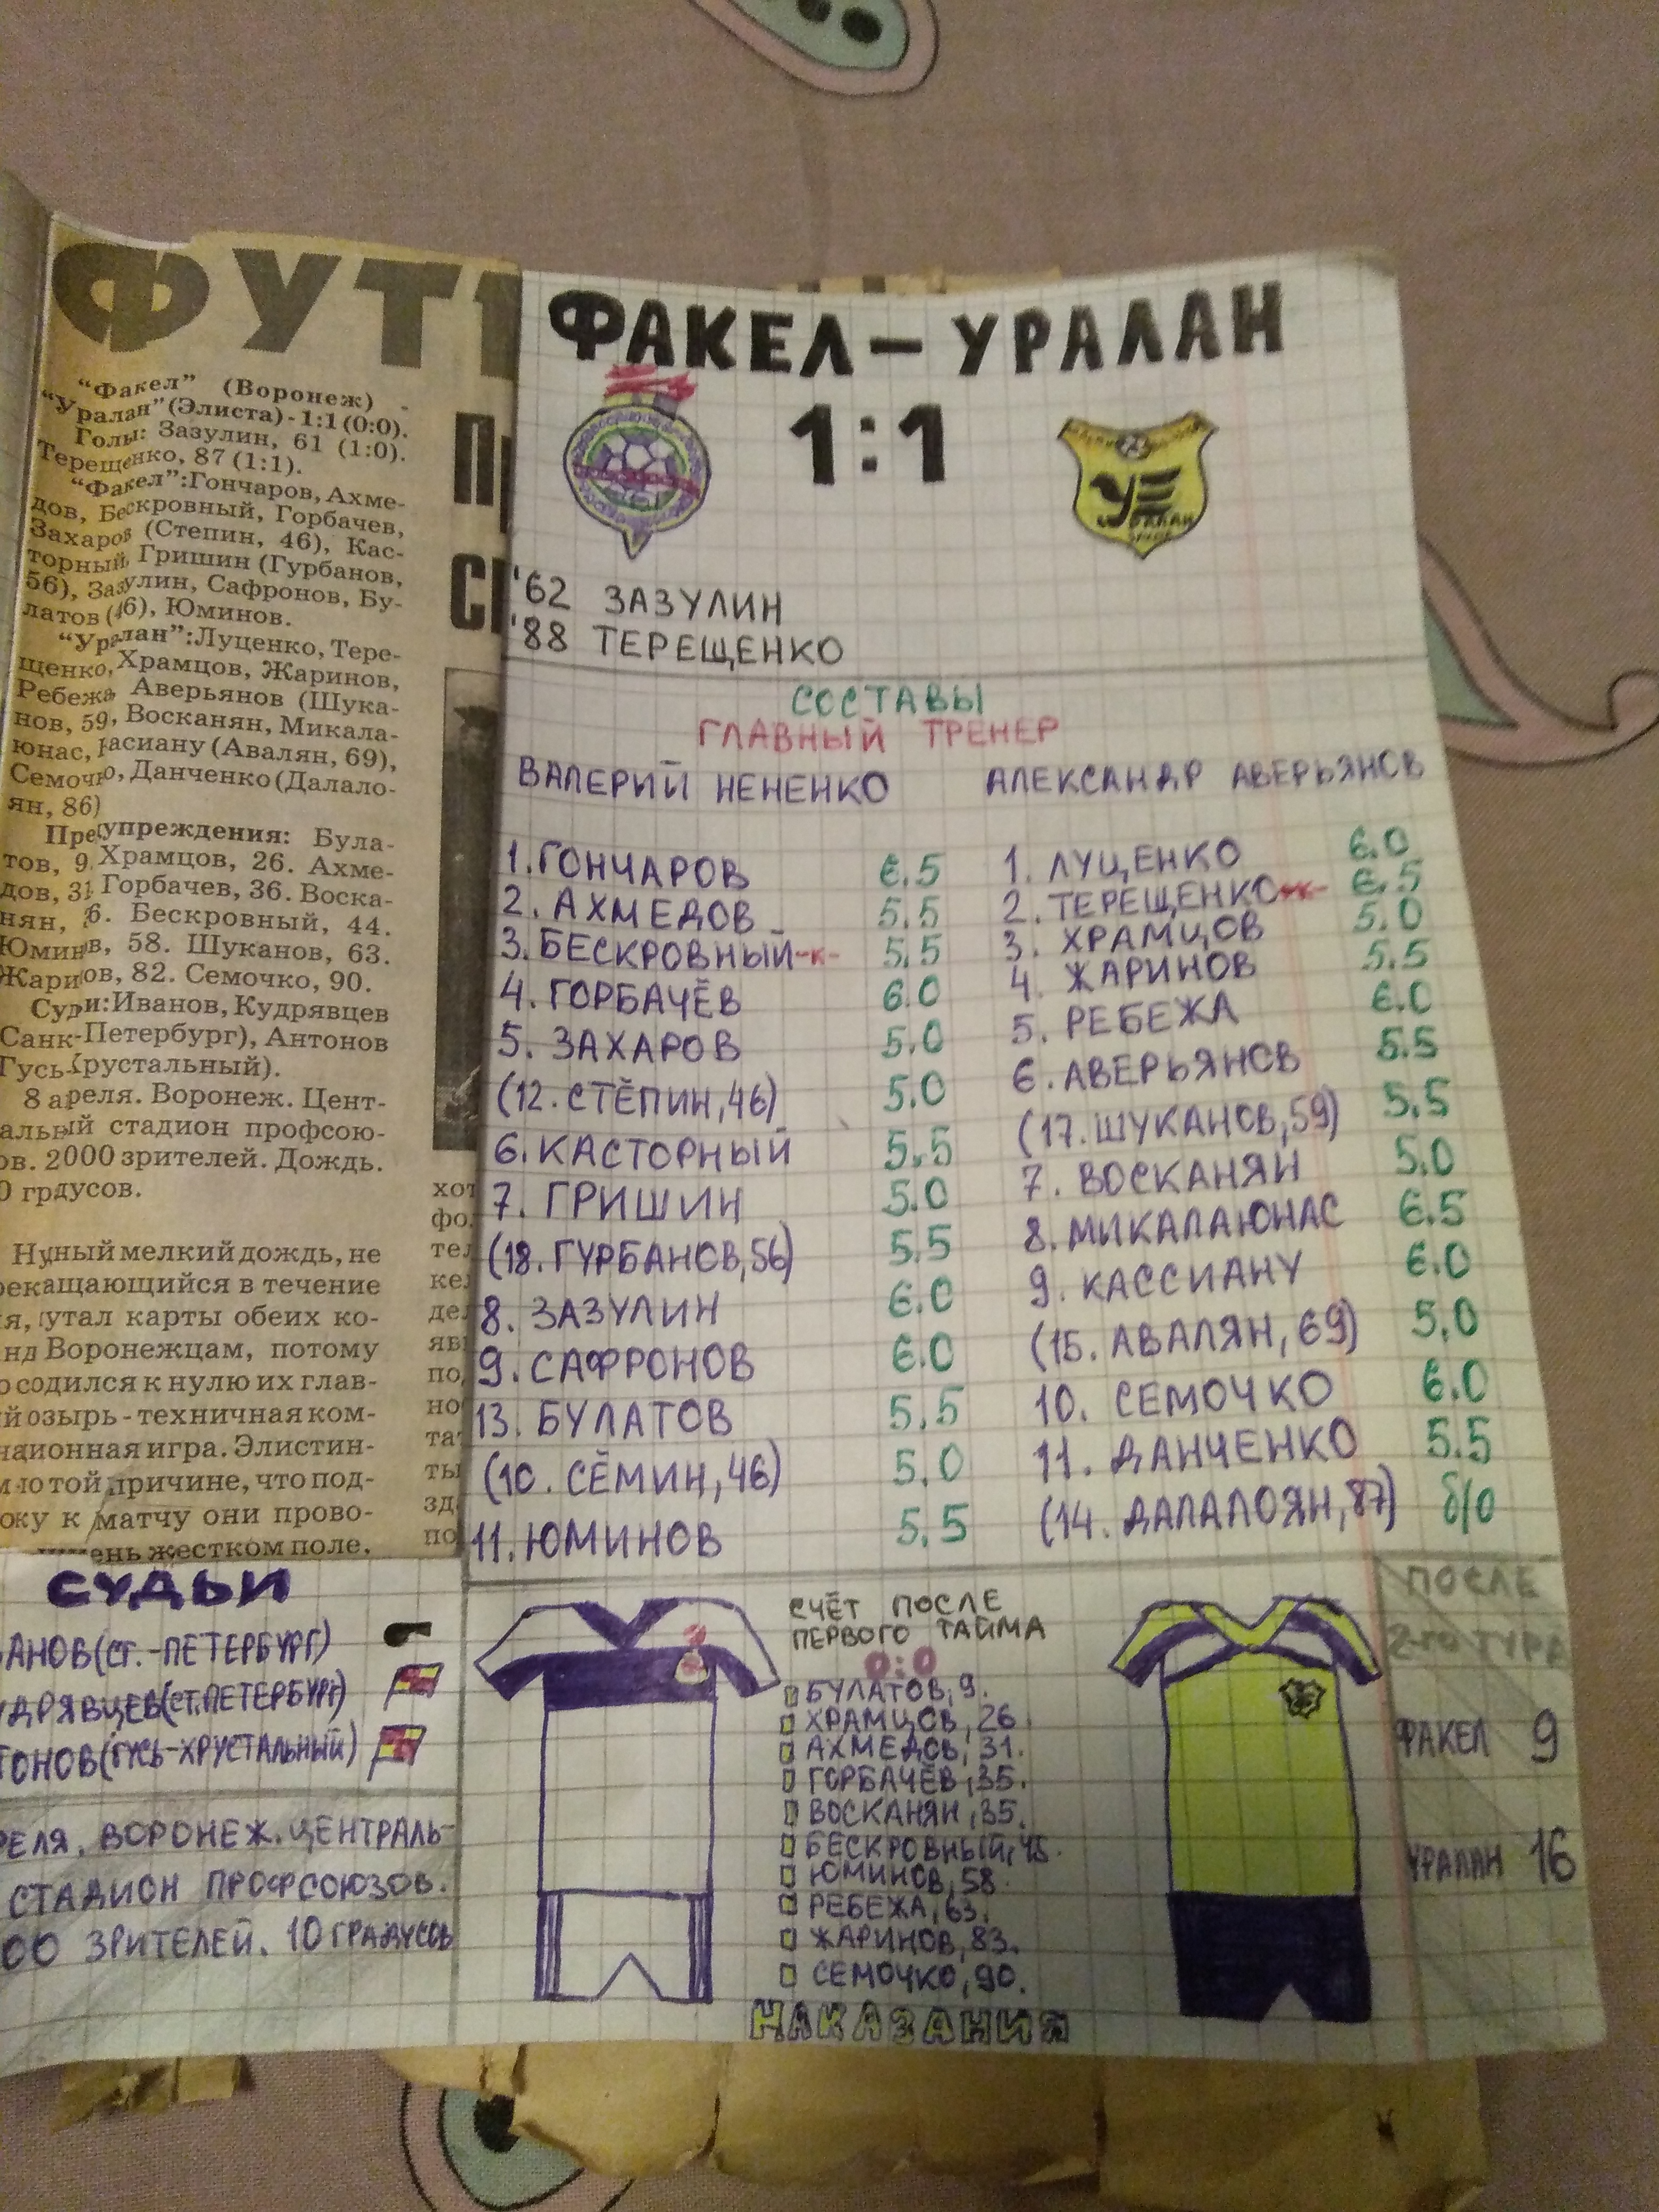 ФУТ
"Факел" (Воронеж) -
"Уралан" (Элиста) - 1:1 (0:0).
Голы: Зазулин, 61 (1:0).
Терещенко, 87 (1:1).
"Факел": Гончаров, Ахме-
дов, Бескровный, Горбачев,
Захаров (Степин, 46), Кас-
торный, Гришин (Гурбанов,
56), Зазулин, Сафронов, Бу-
латов (46), Юминов.
"Уралан": Луценко, Тере-
щенко, Храмцов, Жаринов,
Ребежа, Аверьянов (Шука-
нов, 59, Восканян, Микала-
юнас, асиану (Авалян, 69),
Семочко, Данченко (Далало-
ян, 86)
Предупреждения: Була-
тов, 9. Храмцов, 26. Ахме-
дов, 31 Горбачев, 36. Воска-
нян, 6. Бескровный, 44.
Юминов, 58. Шуканов, 63.
Жаринов, 82. Семочко, 90.
Суди: Иванов, Кудрявцев
Санк-Петербург), Антонов
Гусь-Хрустальный).
8 апреля. Воронеж. Цент-
альный стадион профсою-
ов. 2000 зрителей. Дождь.
0 градусов.
Нудный мелкий дождь, не
рекащающийся в течение
я, утал карты обеих ко-
нд Воронежцам, потому
о содился к нулю их глав-
й озырь - техничная ком-
национная игра. Элистин-
м по той причине, что под-
оку к матчу они прово-
ень жестком поле.
хот
фо
тел
ке
де
яв
по
но
та
ты
зд
по
СУДЬИ
АНОВ (СТ.-ПЕТЕРБУРГ)
УДРЯВЦЕВ (СТ.ПЕТЕРБУРГ)
ТОНОВ (ГУСЬ-ХРУСТАЛЬНЫЙ)
РЕЛЯ. ВОРОНЕЖ. ЦЕНТРАЛЬ-
СТАДИОН ПРОФСОЮЗОВ.
00 ЗРИТЕЛЕЙ. 10 ГРАДУСОВ
ФАКЕЛ – УРАЛАН
1:1
УРАЛАН
'62 ЗАЗУЛИН
'88 ТЕРЕЩЕНКО
СОСТАВЫ
ГЛАВНЫЙ ТРЕНЕР
ВАЛЕРИЙ НЕНЕНКО АЛЕКСАНДР АВЕРЬЯНОВ
1. ГОНЧАРОВ 6.5
2. АХМЕДОВ 5.5
3. БЕСКРОВНЫЙ -к- 5.5
4. ГОРБАЧЁВ 6.0
5. ЗАХАРОВ 5.0
(12. СТЁПИН, 46) 5.0
6. КАСТОРНЫЙ 5.5
7. ГРИШИН 5.0
(18. ГУРБАНОВ, 56) 5.5
8. ЗАЗУЛИН 6.0
9. САФРОНОВ 6.0
13. БУЛАТОВ 5.5
(10. СЁМИН, 46) 5.0
11. ЮМИНОВ 5.5
1. ЛУЦЕНКО 6.0
2. ТЕРЕЩЕНКО -к- 6.5
3. ХРАМЦОВ 5.0
4. ЖАРИНОВ 5.5
5. РЕБЕЖА 6.0
6. АВЕРЬЯНОВ 5.5
(17. ШУКАНОВ, 59) 5.5
7. ВОСКАНЯН 5.0
8. МИКАЛАЮНАС 6.5
9. КАССИАНУ 6.0
(15. АВАЛЯН, 69) 5.0
10. СЕМОЧКО 6.0
11. ДАНЧЕНКО 5.5
(14. ДАЛАЛОЯН, 87) б/о
СЧЁТ ПОСЛЕ
ПЕРВОГО ТАЙМА
0:0
БУЛАТОВ, 9.
ХРАМЦОВ, 26.
АХМЕДОВ, 31.
ГОРБАЧЁВ, 35.
ВОСКАНЯН, 35.
БЕСКРОВНЫЙ, 45.
ЮМИНОВ, 58.
РЕБЕЖА, 63.
ЖАРИНОВ, 83.
СЕМОЧКО, 90.
НАКАЗАНИЯ
ПОСЛЕ
2-го ТУРА
ФАКЕЛ 9
УРАЛАН 16